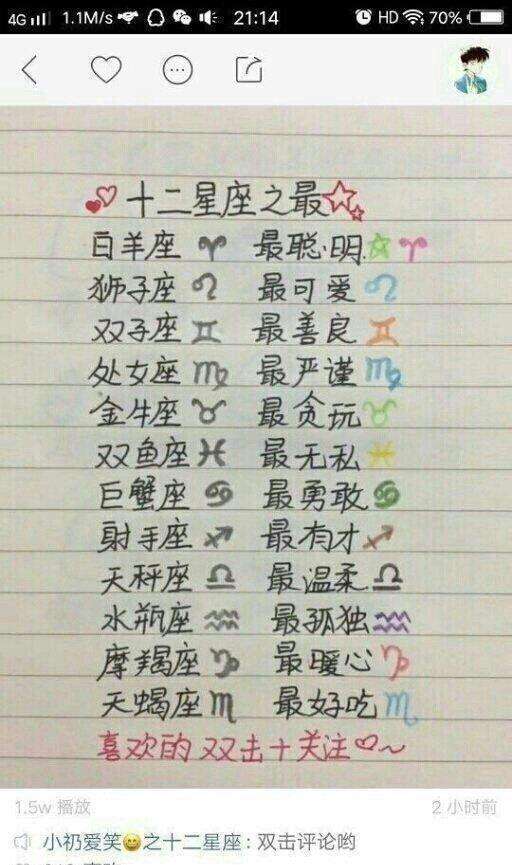 4G 1.1M/s 21:14 HD 70%
十二星座之最
白羊座 ♈ 最聪明 ♈
狮子座 ♌ 最可爱 ♌
双子座 ♊ 最善良 ♊
处女座 ♍ 最严谨 ♍
金牛座 ♉ 最贪玩 ♉
双鱼座 ♓ 最无私 ♓
巨蟹座 ♋ 最勇敢 ♋
射手座 ♐ 最有才 ♐
天秤座 ♎ 最温柔 ♎
水瓶座 ♒ 最孤独 ♒
摩羯座 ♑ 最暖心 ♑
天蝎座 ♏ 最好吃 ♏
喜欢的双击+关注♡~
1.5w 播放 2 小时前
小礽爱笑😄之十二星座:双击评论哟